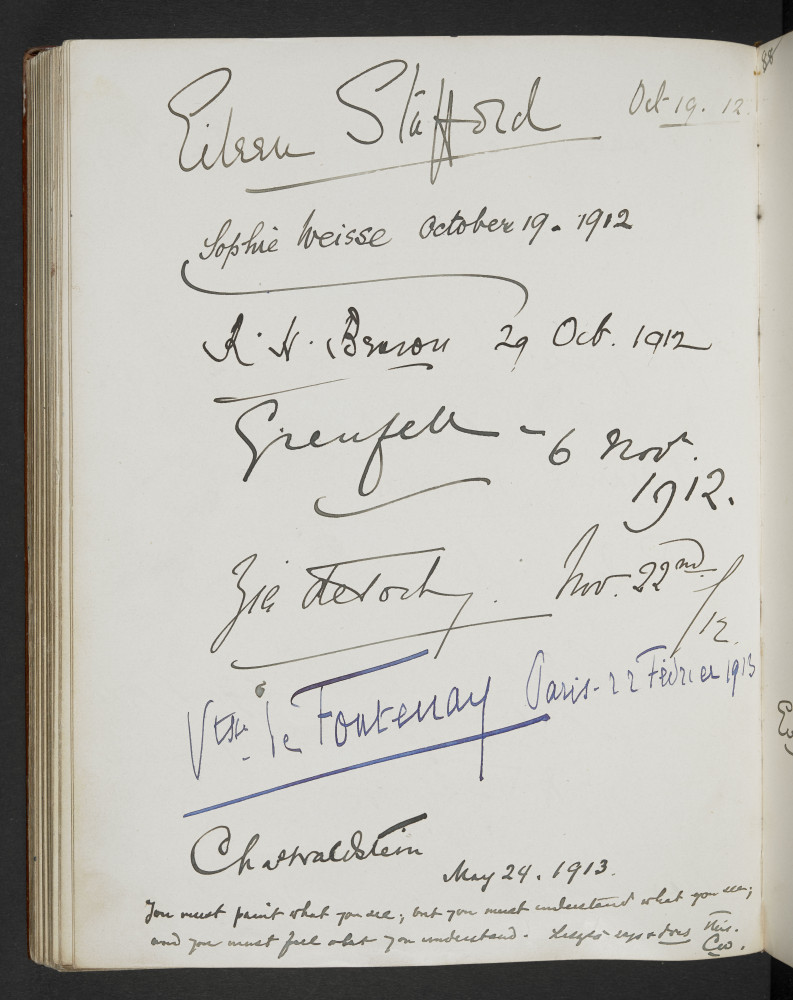 88
Eileen Stafford Oct 19. 12.
Sophie Weisse October 19. 1912
R. H. Benson 29 Oct. 1912
Grenfell - 6 Nov.
1912.
Zia de Nov. 22nd
/12.
Vtsse de Fontenay Paris - 22 Février 1913
Chas Waldstein
May 24. 1913.
You must paint what you see; but you must understand what you see;
and you must feel what you understand. says & does this.
CW.